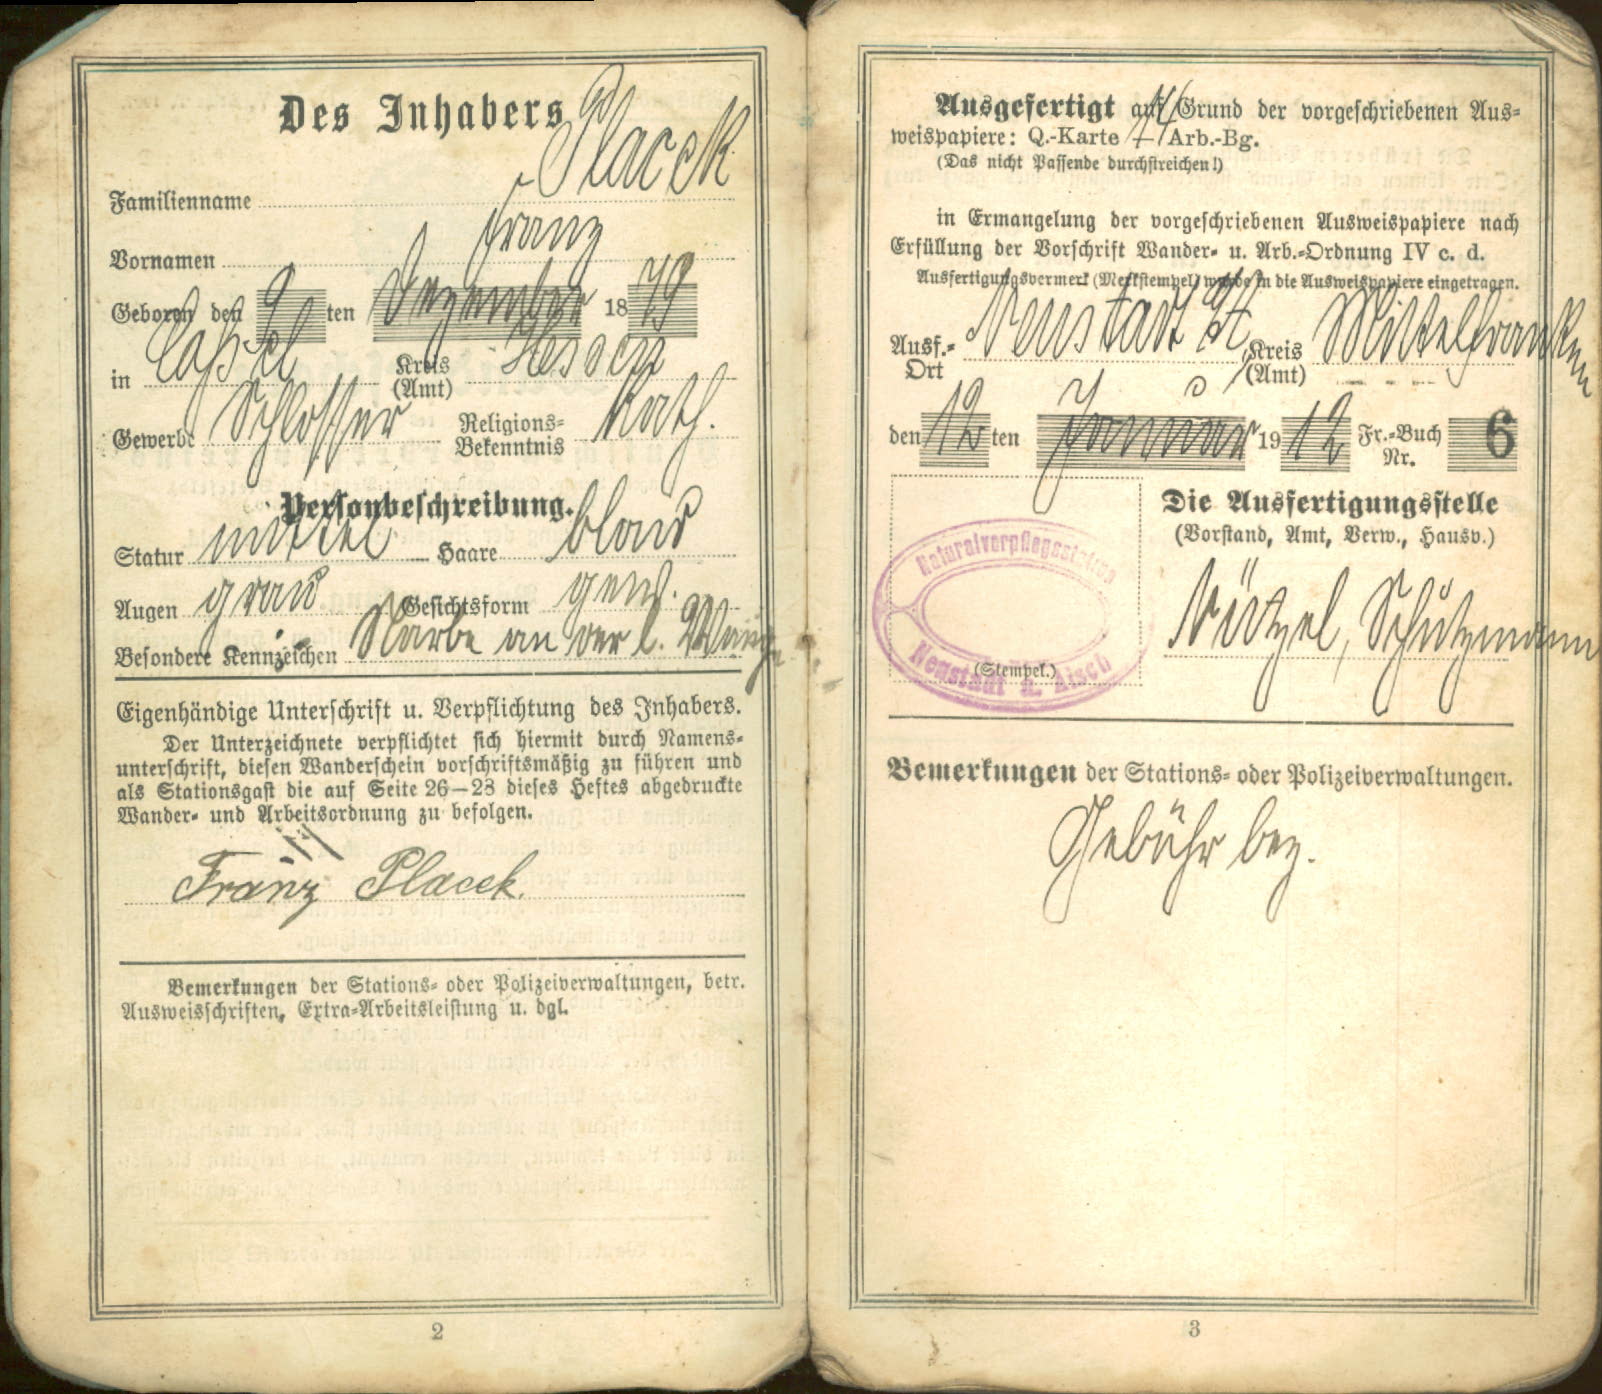 Des Inhabers
Familienname Placek
Vornamen Franz
Geboren den 9 ten Dezember 1879
in Cassel Kreis (Amt) Hessen
Gewerbe Schlosser Religions-Bekenntnis Kath.
Personbeschreibung.
Statur mittel Haare
Augen grau Gesichtsform gew.
Besondere Kennzeichen Narbe an der l. Wange
Eigenhändige Unterschrift u. Verpflichtung des Inhabers.
Der Unterzeichnete verpflichtet sich hiermit durch Namens-
unterschrift, diesen Wanderschein vorschriftsmäßig zu führen und
als Stationsgast die auf Seite 26–28 dieses Heftes abgedruckte
Wander- und Arbeitsordnung zu befolgen.
Franz Placek.
Bemerkungen der Stations- oder Polizeiverwaltungen, betr.
Ausweisschriften, Extra-Arbeitsleistung u. dgl.
2
Ausgefertigt auf Grund der vorgeschriebenen Aus-
weispapiere: Q.-Karte / Arb.-Bg.
(Das nicht Passende durchstreichen!)
in Ermangelung der vorgeschriebenen Ausweispapiere nach
Erfüllung der Vorschrift Wander- u. Arb.-Ordnung IV c. d.
Ausfertigungsvermerk (Merkstempel) wurde in die Ausweispapiere eingetragen.
Ausf.-Ort Neustadt a/A Kreis (Amt) Mittelfranken
den 12 ten Januar 1912 Fr.-Buch Nr. 6
Die Ausfertigungsstelle
(Vorstand, Amt, Verw., Hausv.)
Naturalverpflegsstation
Neustadt a. Aisch
(Stempel.)
Schutzmann
Bemerkungen der Stations- oder Polizeiverwaltungen.
Gebühr bez.
3